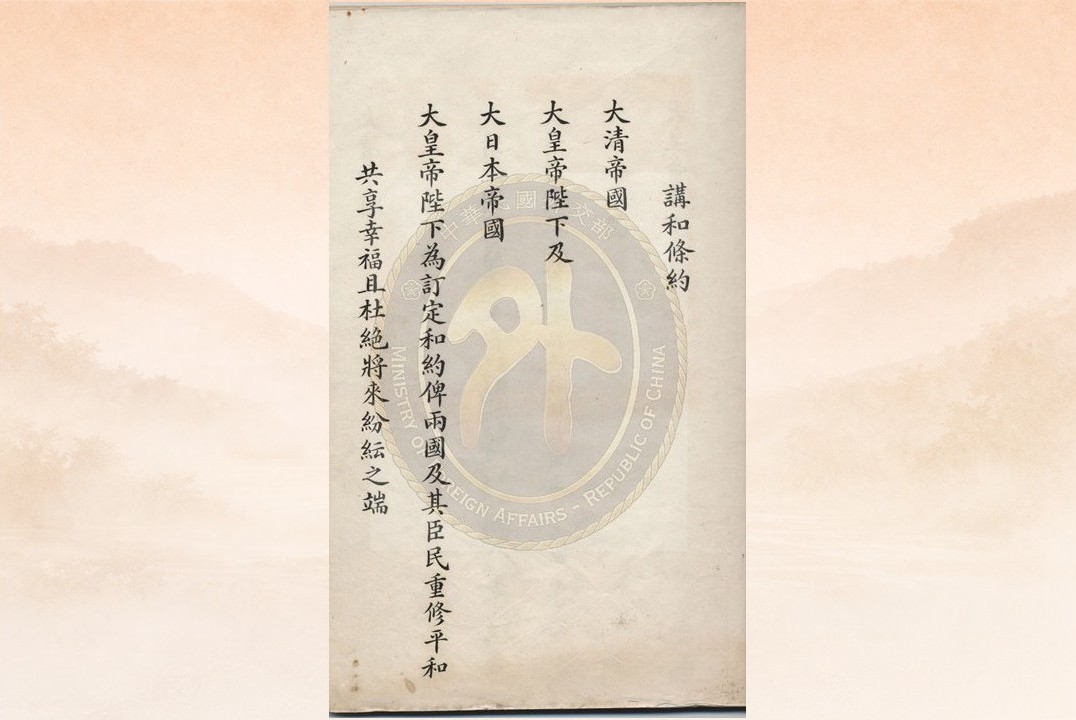 講和條約
大清帝國
大皇帝陛下及
大日本帝國
大皇帝陛下為訂定和約俾兩國及其臣民重修平和
共享幸福且杜絶將來紛紜之端
中華民國 交部
外
MINISTRY OF FOREIGN AFFAIRS - REPUBLIC OF CHINA